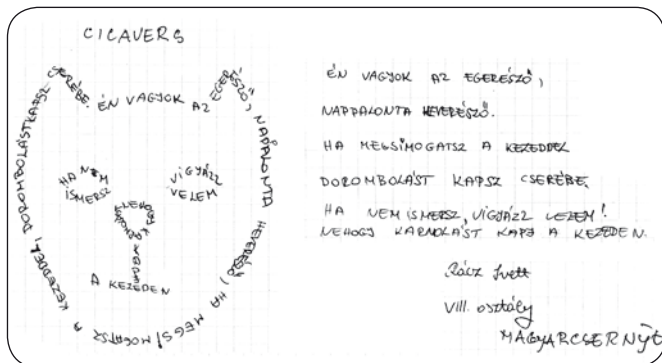 CICAVERS
ÉN VAGYOK AZ EGERÉSZŐ, NAPPALONTA HEVERÉSZŐ, HA MEGSIMOGATSZ A KEZEDDEL, DOROMBOLÁST KAPSZ CSERÉBE.
HA NEM
ISMERSZ
VIGYÁZZ
VELEM
NEHOGY KARMOLÁST KAPJ
A KEZEDEN
ÉN VAGYOK AZ EGERÉSZŐ,
NAPPALONTA HEVERÉSZŐ.
HA MEGSIMOGATSZ A KEZEDDEL
DOROMBOLÁST KAPSZ CSERÉBE.
HA NEM ISMERSZ, VIGYÁZZ VELEM!
NEHOGY KARMOLÁST KAPJ A KEZEDEN.
Rácz Ivett
VIII. osztály
MAGYARCSERNYE